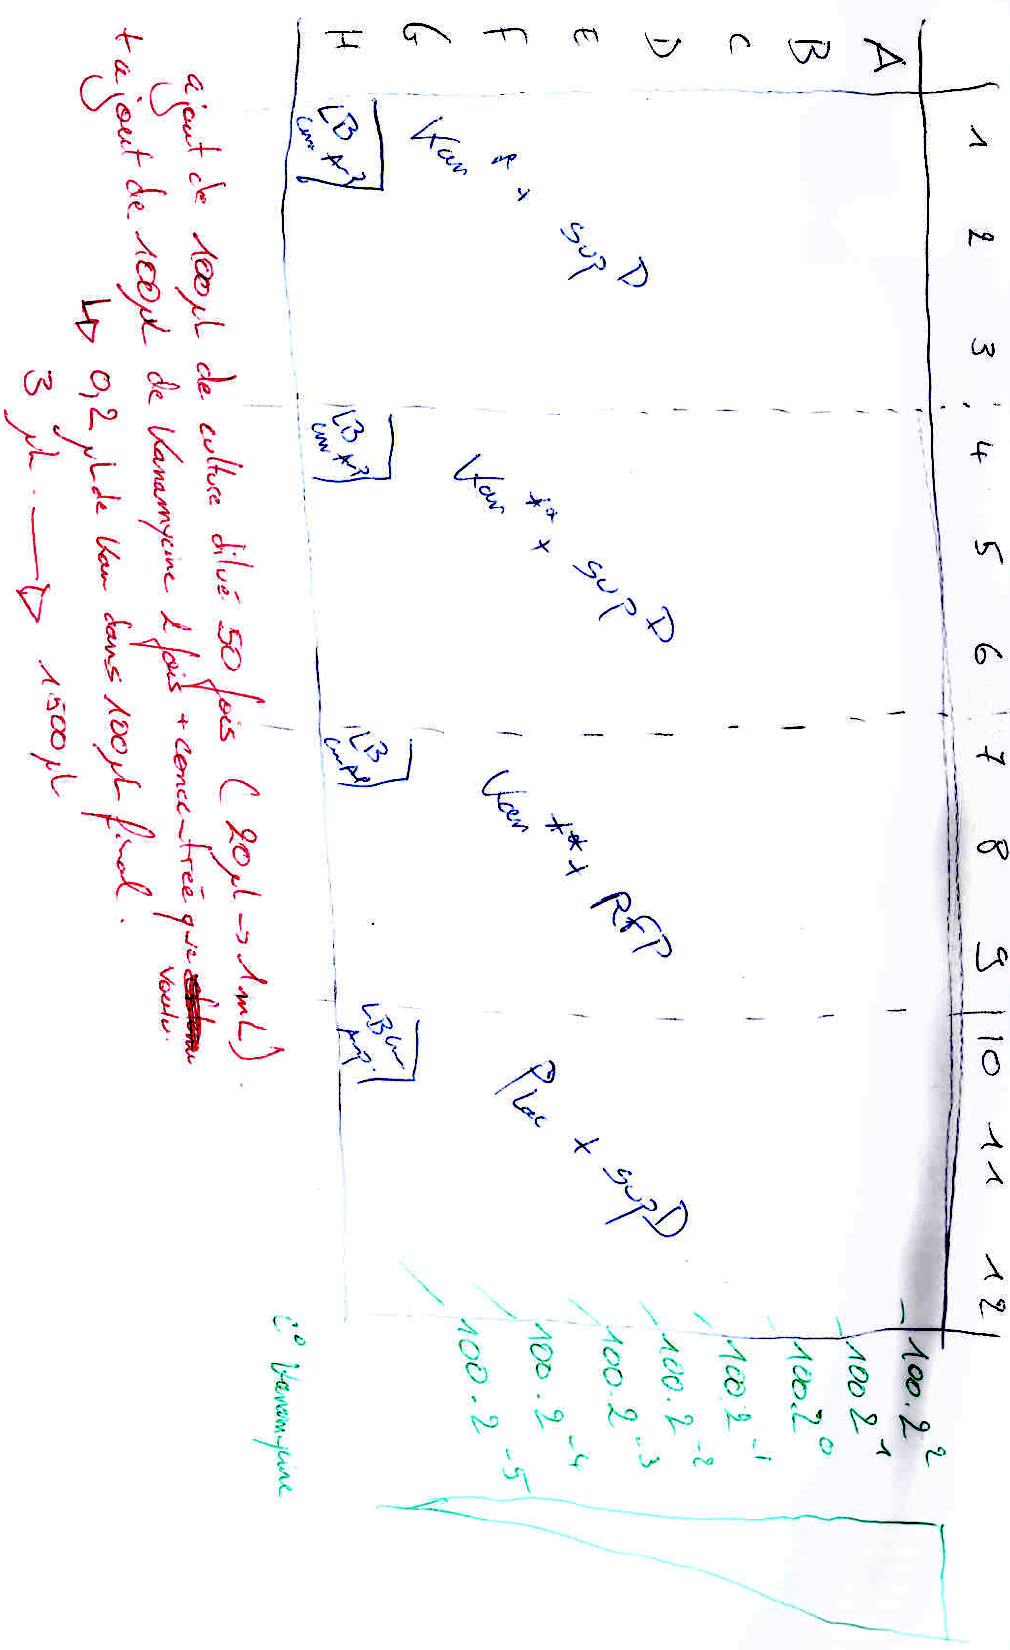 1 2 3 4 5 6 7 8 9 10 11 12
A
B
C
D
E
F
G
H
Kan ** x sup D
Kan ** x sup D
Kan ** x RFP
Plac x sup D
LB
LB
LB
LB
100.2^2
100.2^1
100.2^0
100.2^-1
100.2^-2
100.2^-3
100.2^-4
100.2^-5
C° Kanamycine
ajout de 100µL de culture dilué 50 fois (20µL -> 1mL).
+ ajout de 100µL de Kanamycine 2 fois + concentrée que voulu.
↳ 0,2µL de Kan dans 100µL final.
3 µL → 1500µL